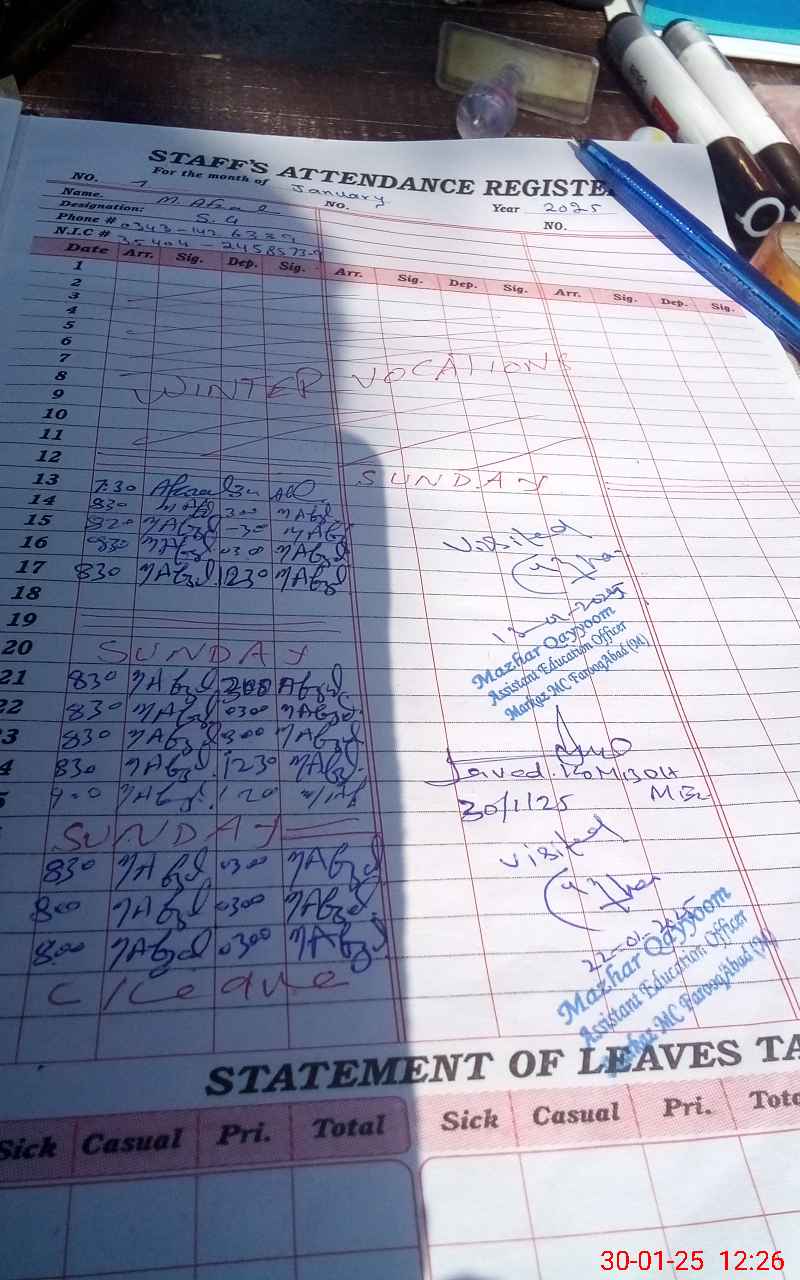 STAFF'S ATTENDANCE REGISTE
For the month of January Year 2025
NO. 7 NO. NO.
Name. M. Afzal
Designation: S.G
Phone #
N.I.C #
Date Arr. Sig. Dep. Sig. Arr. Sig. Dep. Sig. Arr. Sig. Dep. Sig.
1
2
3
4
5
6
7
8 WINTER VOCATIONS
9
10
11
12 SUNDAY
13 7:30
14 830 300
15 820 MAfzal
16 830 MAfzal 0300 MAfzal
17 830 MAfzal 1230 MAfzal
visited
Azhar
18
19
13-01-2025
Mazhar Qayyoom
Assistant Education Officer
Markaz MC FarooqAbad (M)
20 SUNDAY
21 830 MAfzal 300 Afzal
22 830 MAfzal 0300 MAfzal
3 830 MAfzal 300 MAfzal
4 830 MAfzal 1230 MAfzal
Javed
30/1/25
SUNDAY
visited
Azhar
830 MAfzal 0300 MAfzal
800 MAfzal 0300 MAfzal
8:00 MAfzal 0300 MAfzal
22-01-2025
Mazhar Qayyoom
Assistant Education Officer
Markaz MC FarooqAbad (M)
C/leave
STATEMENT OF LEAVES TA
Sick Casual Pri. Total Sick Casual Pri. Tota
30-01-25 12:26